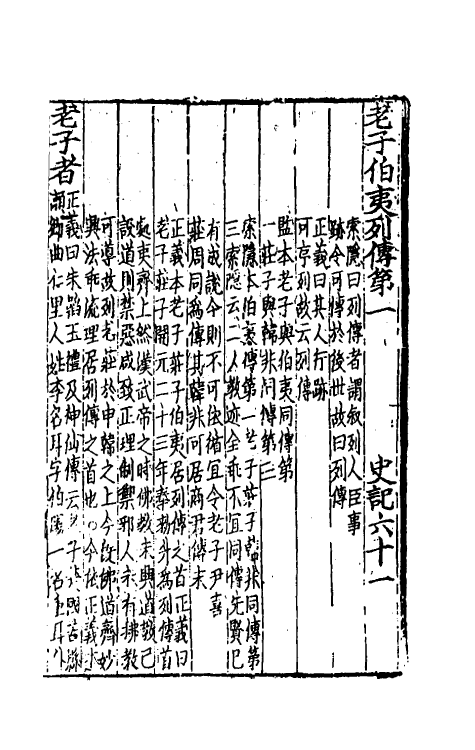 老子伯夷列傳第一　史記六十一
索隱曰列傳者謂叙列人臣事
跡令可傳於後世故曰列傳
正義曰其人行跡
可序列故云列傳
監本老子與伯夷同傳第
一莊子與韓非同傳第三
索隱本伯夷傳第一老子莊子韓非同傳第
三索隱云二人教迹全乖不宜同傳先賢已
有成說今則不可依循宜令老子尹喜
莊周同爲傳其韓非可居商君傳末
正義本老子莊子伯夷居列傳之首正義曰
老子莊子開元二十三年奉勑升爲列傳首
處夷齊上然漢武帝之時佛教未興道教已
設道則禁惡咸致正理制禦邪人未有佛教
可導故列老莊於申韓之上今旣佛道齊妙
興法乖流理居列傳之首也○今依正義本
老子者
正義曰朱韜玉禮及神仙傳云老子楚國苦縣
瀨鄉曲仁里人姓李名耳字伯陽一名重耳外